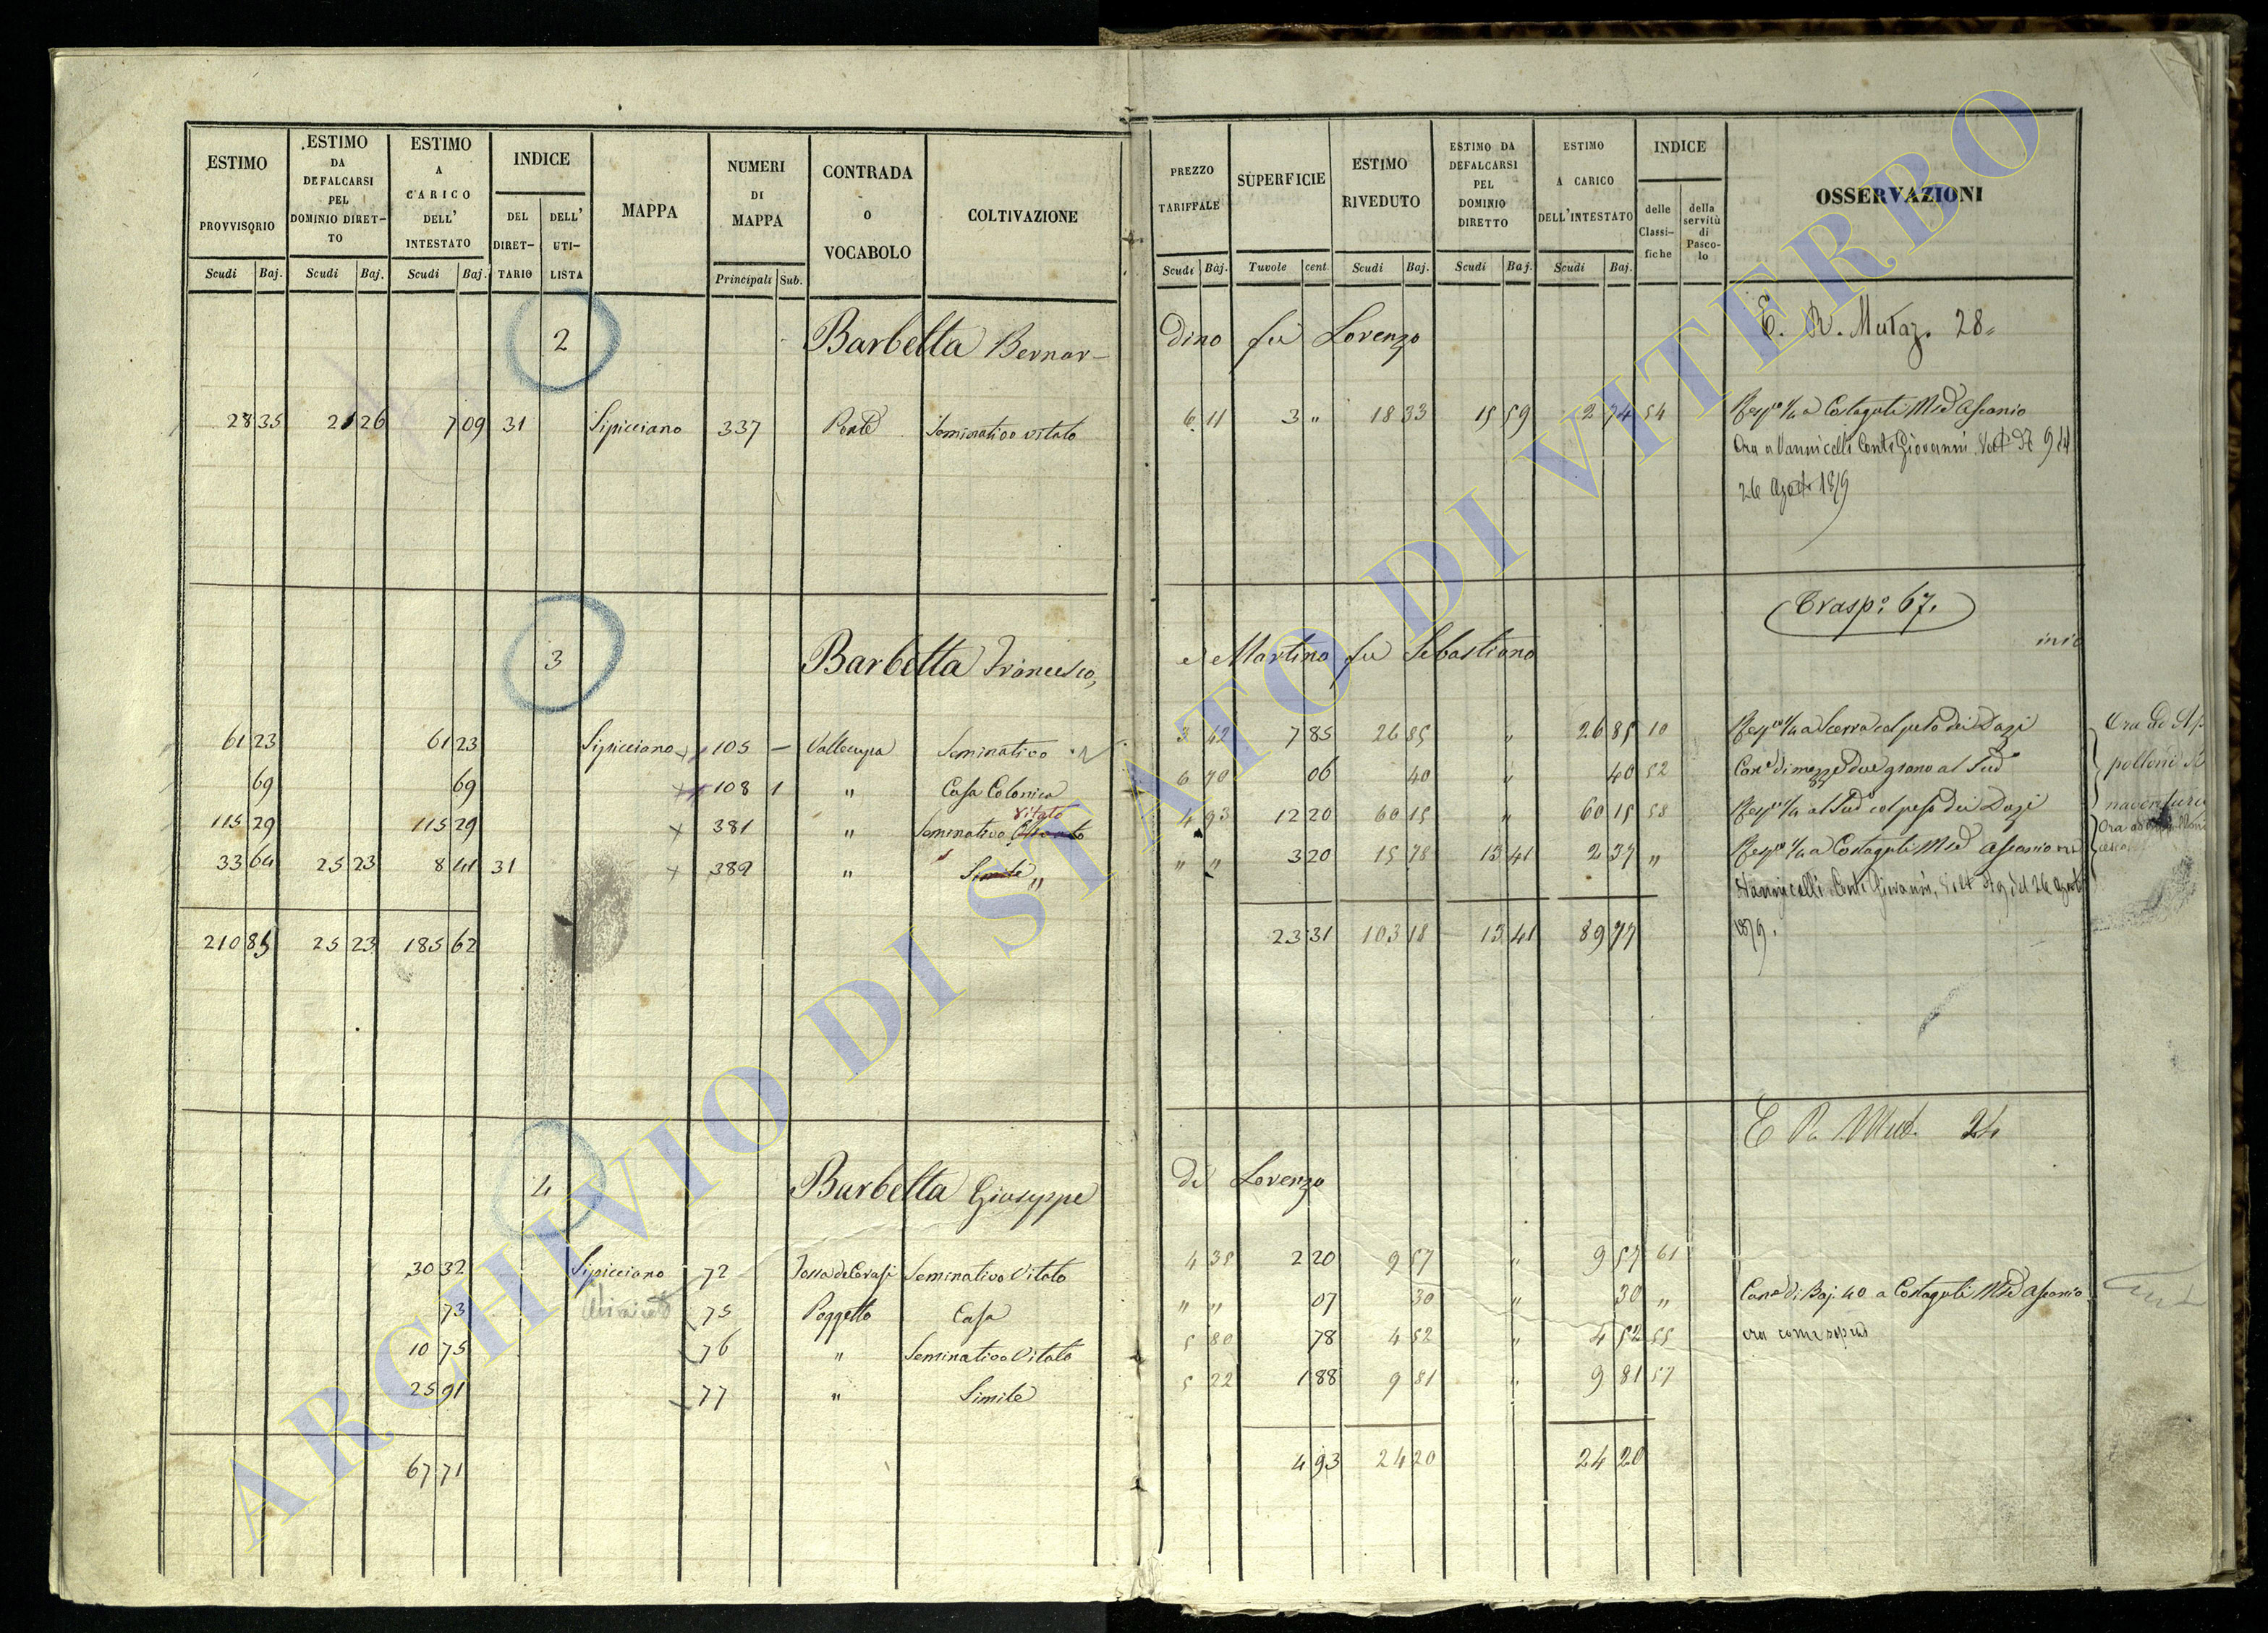 ESTIMO PROVVISORIO Scudi Baj.
ESTIMO DA DEFALCARSI PEL DOMINIO DIRETTO Scudi Baj.
ESTIMO A CARICO DELL' INTESTATO Scudi Baj.
INDICE DEL DIRETTARIO DELL' UTILISTA
MAPPA
NUMERI DI MAPPA Principali Sub.
CONTRADA O VOCABOLO
COLTIVAZIONE
PREZZO TARIFFALE Scudi Baj.
SUPERFICIE Tavole cent.
ESTIMO RIVEDUTO Scudi Baj.
ESTIMO DA DEFALCARSI PEL DOMINIO DIRETTO Scudi Baj.
ESTIMO A CARICO DELL'INTESTATO Scudi Baj.
INDICE delle Classifiche della servitù di Pascolo
OSSERVAZIONI
2 Barbetta Bernardino fu Lorenzo
E. R. Mutaz. 28
28 35 21 26 7 09 31 Sipicciano 337 Ponte Seminativo vitato 6 11 3 " 18 33 15 59 2 74 54 Resp.vo 1/4 a Costaguti Mse Ascanio
Ora a Vannicelli Conti Giovanni
26 Agosto 1879
Trasp.o 67.
3 Barbetta Francesco, e Martino fu Sebastiano
61 23 61 23 Sipicciano 105 – Vallecupa Seminativo 3 42 7 85 26 85 " 26 85 10 Resp.vo 1/4 a Scerra col peso dei Dazi
69 69 108 1 " Casa Colonica 6 70 06 40 " 40 52 Can.e di mezzo due grano al Sud.o
vitato
115 29 115 29 381 " Seminativo Olivato 4 93 12 20 60 15 " 60 15 58 Resp.vo 1/4 al Sud.o col peso dei Dazi
33 64 25 23 8 41 31 389 " Simile " " " 3 20 15 78 13 41 2 37 " Resp.vo 1/4 a Costaguti Mse Ascanio ora
Vannicelli Conti Giovanni, del 26 Agosto
1879.
210 85 25 23 185 62 23 31 103 18 13 41 89 77
E R Mut. 24
4 Barbetta Giuseppe di Lorenzo
30 32 Sipicciano 72 Fossa de Cerasi Seminativo Vitato 4 35 2 20 9 57 " 9 57 61
73 75 Poggetto Casa " " 07 30 " 30 " Can.e di Baj. 40 a Costaguti Mse Ascanio
10 75 76 " Seminativo Vitato 5 80 78 4 52 " 4 52 55 ora come sopra
25 91 77 " Simile 5 22 1 88 9 81 " 9 81 57
67 71 4 93 24 20 24 20
ARCHIVIO DI STATO DI VITERBO